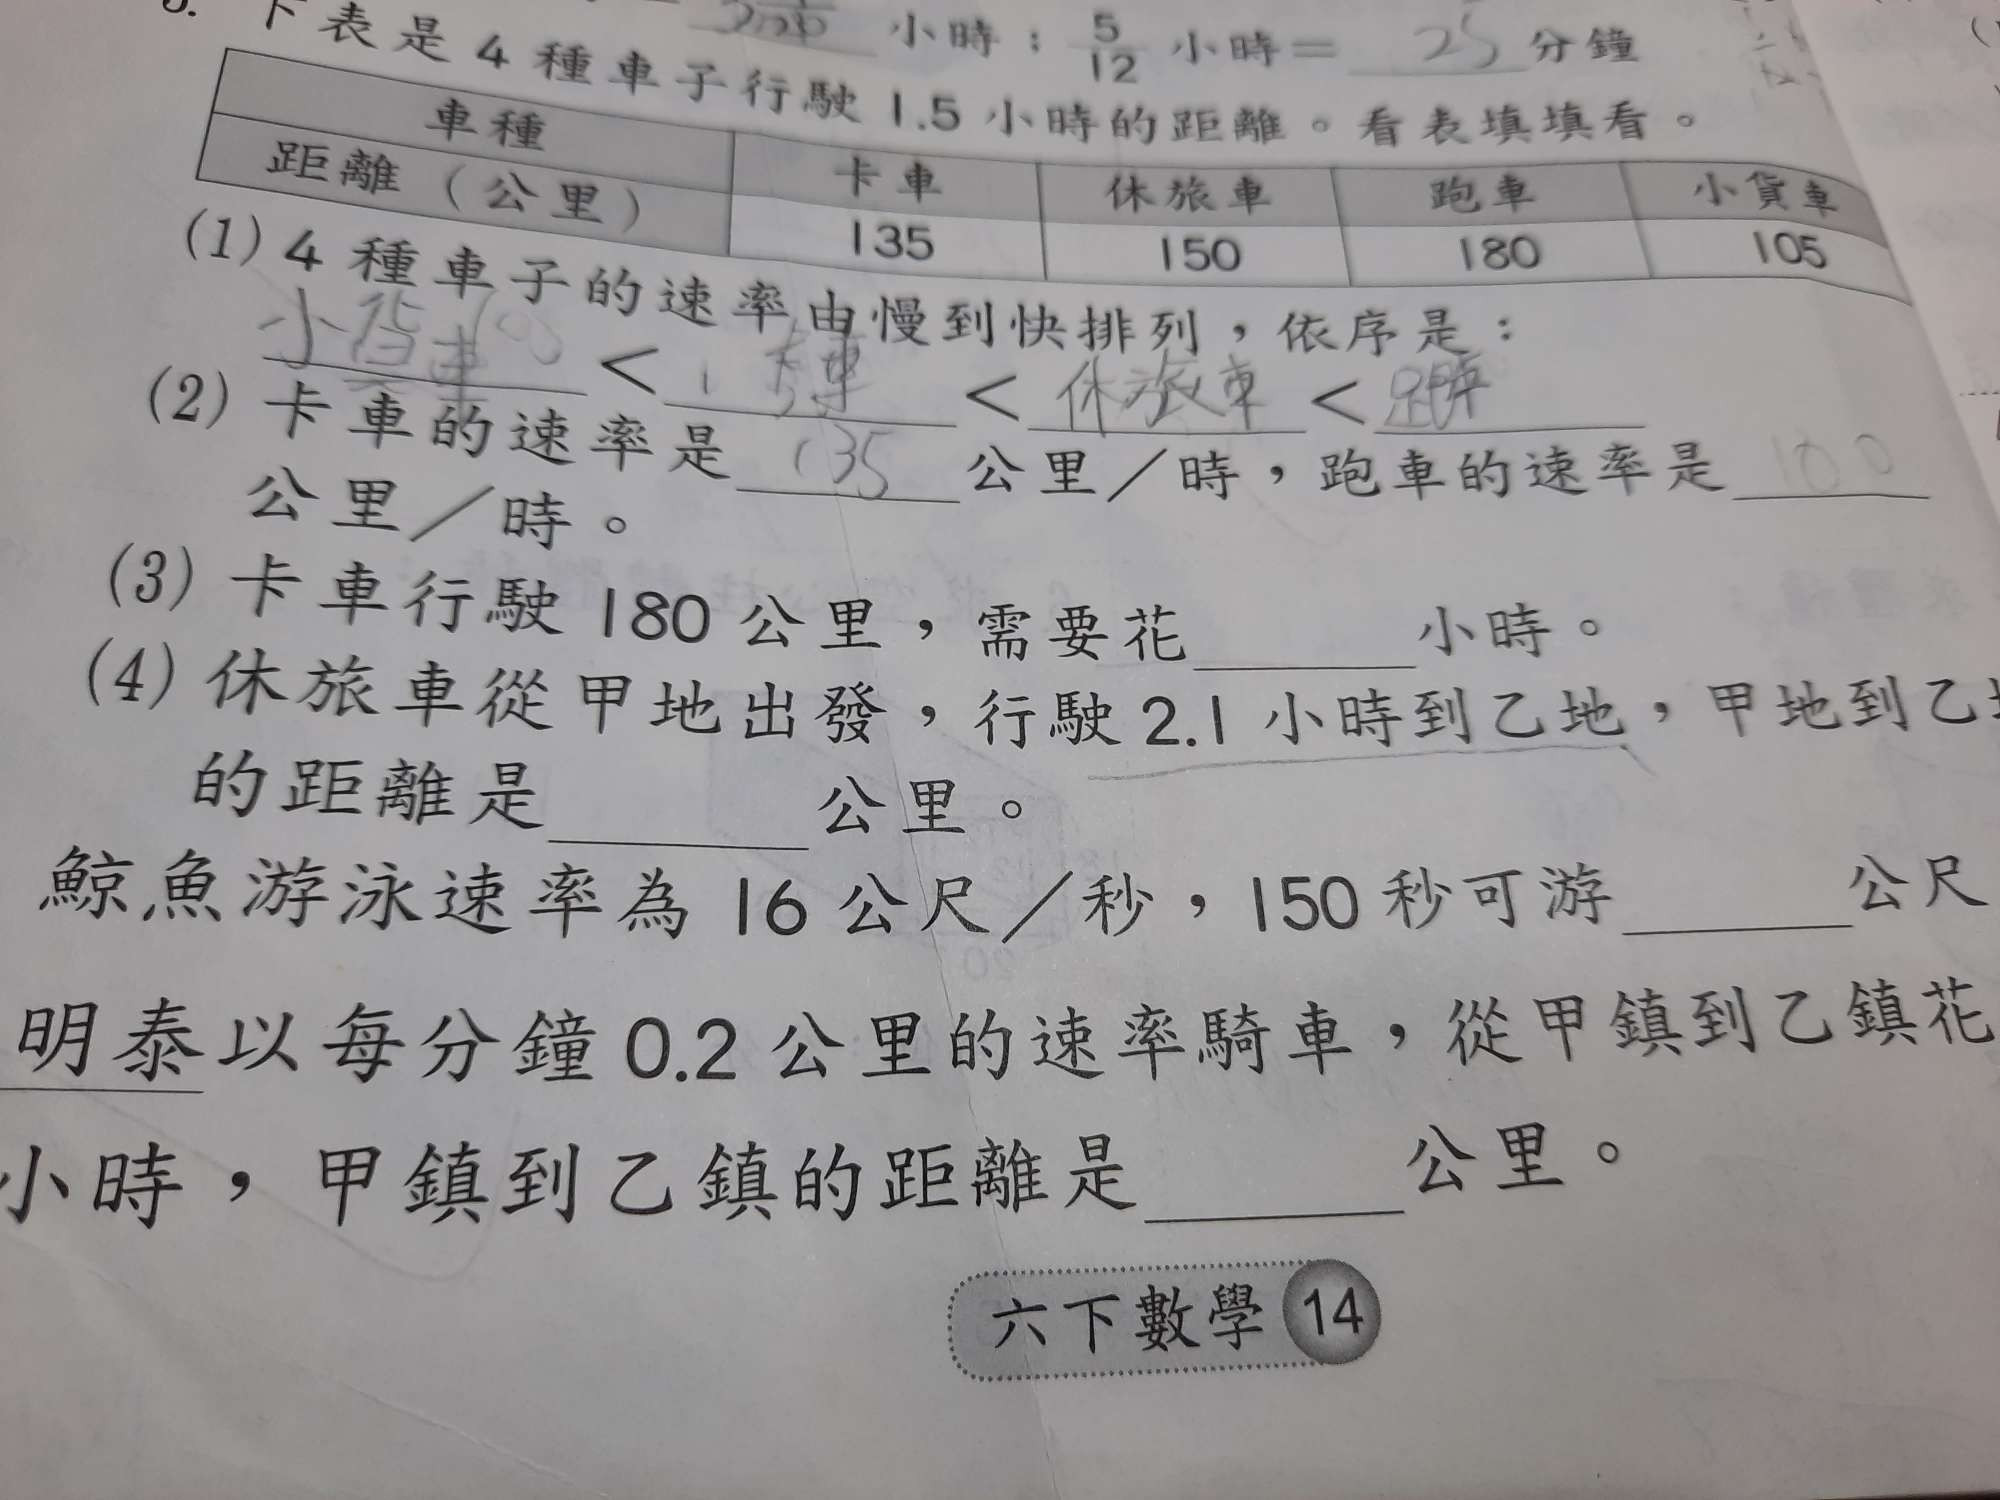 小時；5/12 小時＝25分鐘
下表是 4 種車子行駛 1.5 小時的距離。看表填填看。
車種 卡車 休旅車 跑車 小貨車
距離（公里） 135 150 180 105
(1) 4 種車子的速率由慢到快排列，依序是：
小貨車＜卡車＜休旅車＜跑車
(2) 卡車的速率是 135 公里／時，跑車的速率是 180
公里／時。
(3) 卡車行駛 180 公里，需要花 小時。
(4) 休旅車從甲地出發，行駛 2.1 小時到乙地，甲地到乙
的距離是 公里。
鯨魚游泳速率為 16 公尺／秒，150 秒可游 公尺
明泰以每分鐘 0.2 公里的速率騎車，從甲鎮到乙鎮花
小時，甲鎮到乙鎮的距離是 公里。
六下數學 14